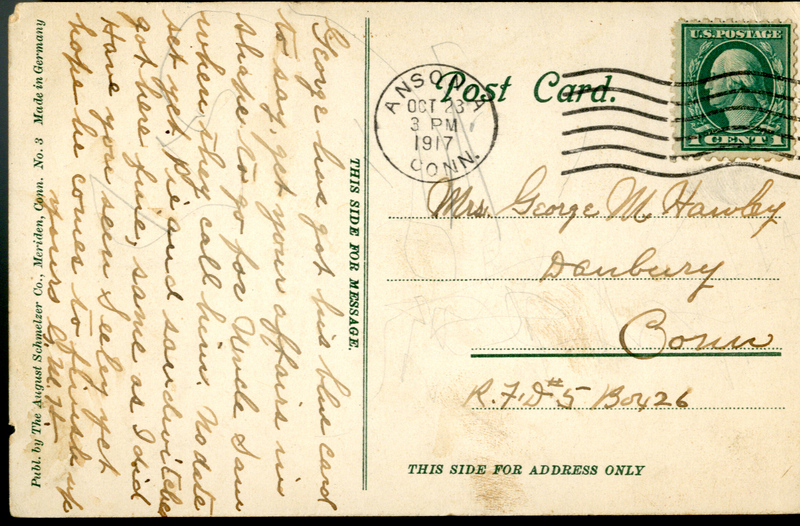 George has got his blue card
to say, get your affairs in
shape to go for Uncle Sam
when they call him. No date
set yet. Pie and sandwitches
got here fine, same as I did
Have you seen Seeley yet
hope he comes to finish up
yours G. M. H.
THIS SIDE FOR MESSAGE.
Publ. by The August Schmelzer Co., Meriden, Conn. No. 3 Made in Germany
Post Card.
U.S. POSTAGE
1 CENT 1
ANSONIA
OCT 23
3 PM
1917
CONN.
Mrs. George M Hawley
Danbury
Conn
R.F.D #5 Box 26
THIS SIDE FOR ADDRESS ONLY